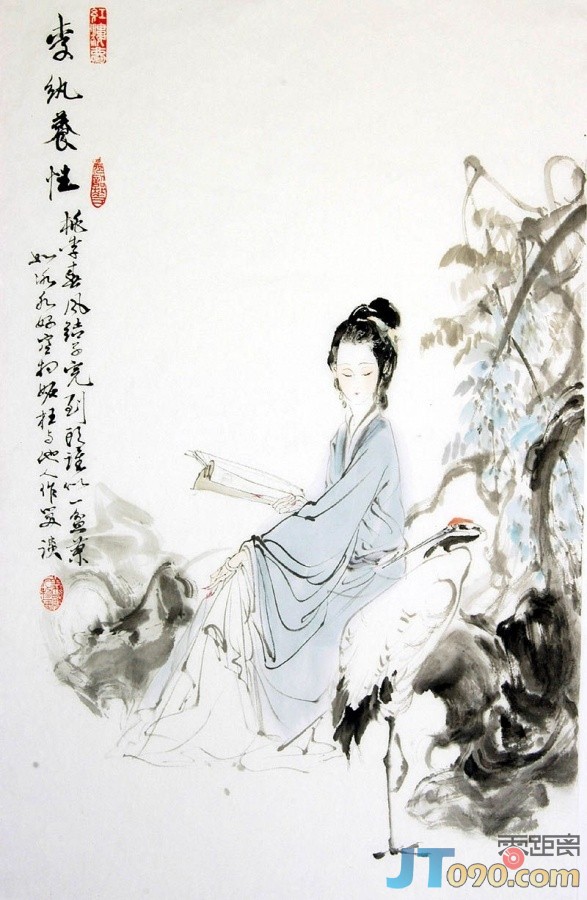 紅樓夢
李纨養性
桃李春风结子完到头谁似一盆蘭
如冰水好空相妒枉与他人作笑谈
零距离
JT090.com